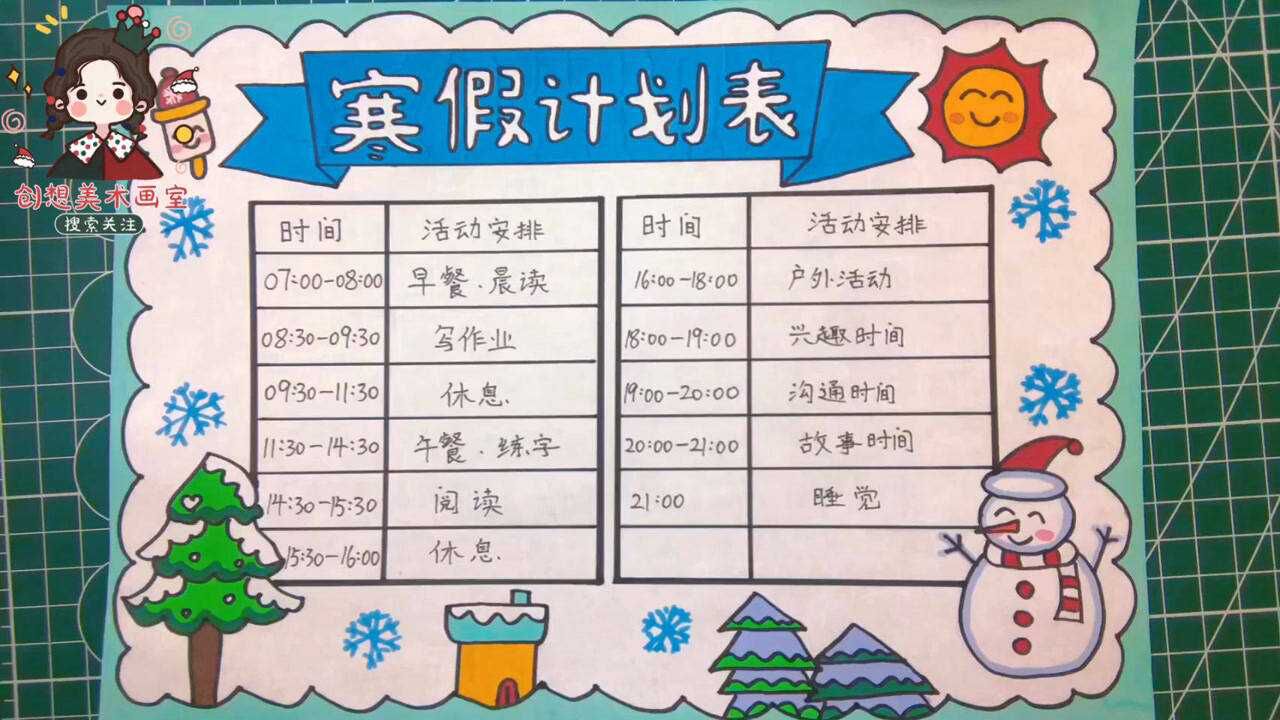 寒假计划表
创想美术画室
搜索关注
时间 活动安排
07:00-08:00 早餐、晨读
08:30-09:30 写作业
09:30-11:30 休息
11:30-14:30 午餐、练字
14:30-15:30 阅读
15:30-16:00 休息
时间 活动安排
16:00-18:00 户外活动
18:00-19:00 兴趣时间
19:00-20:00 沟通时间
20:00-21:00 故事时间
21:00 睡觉